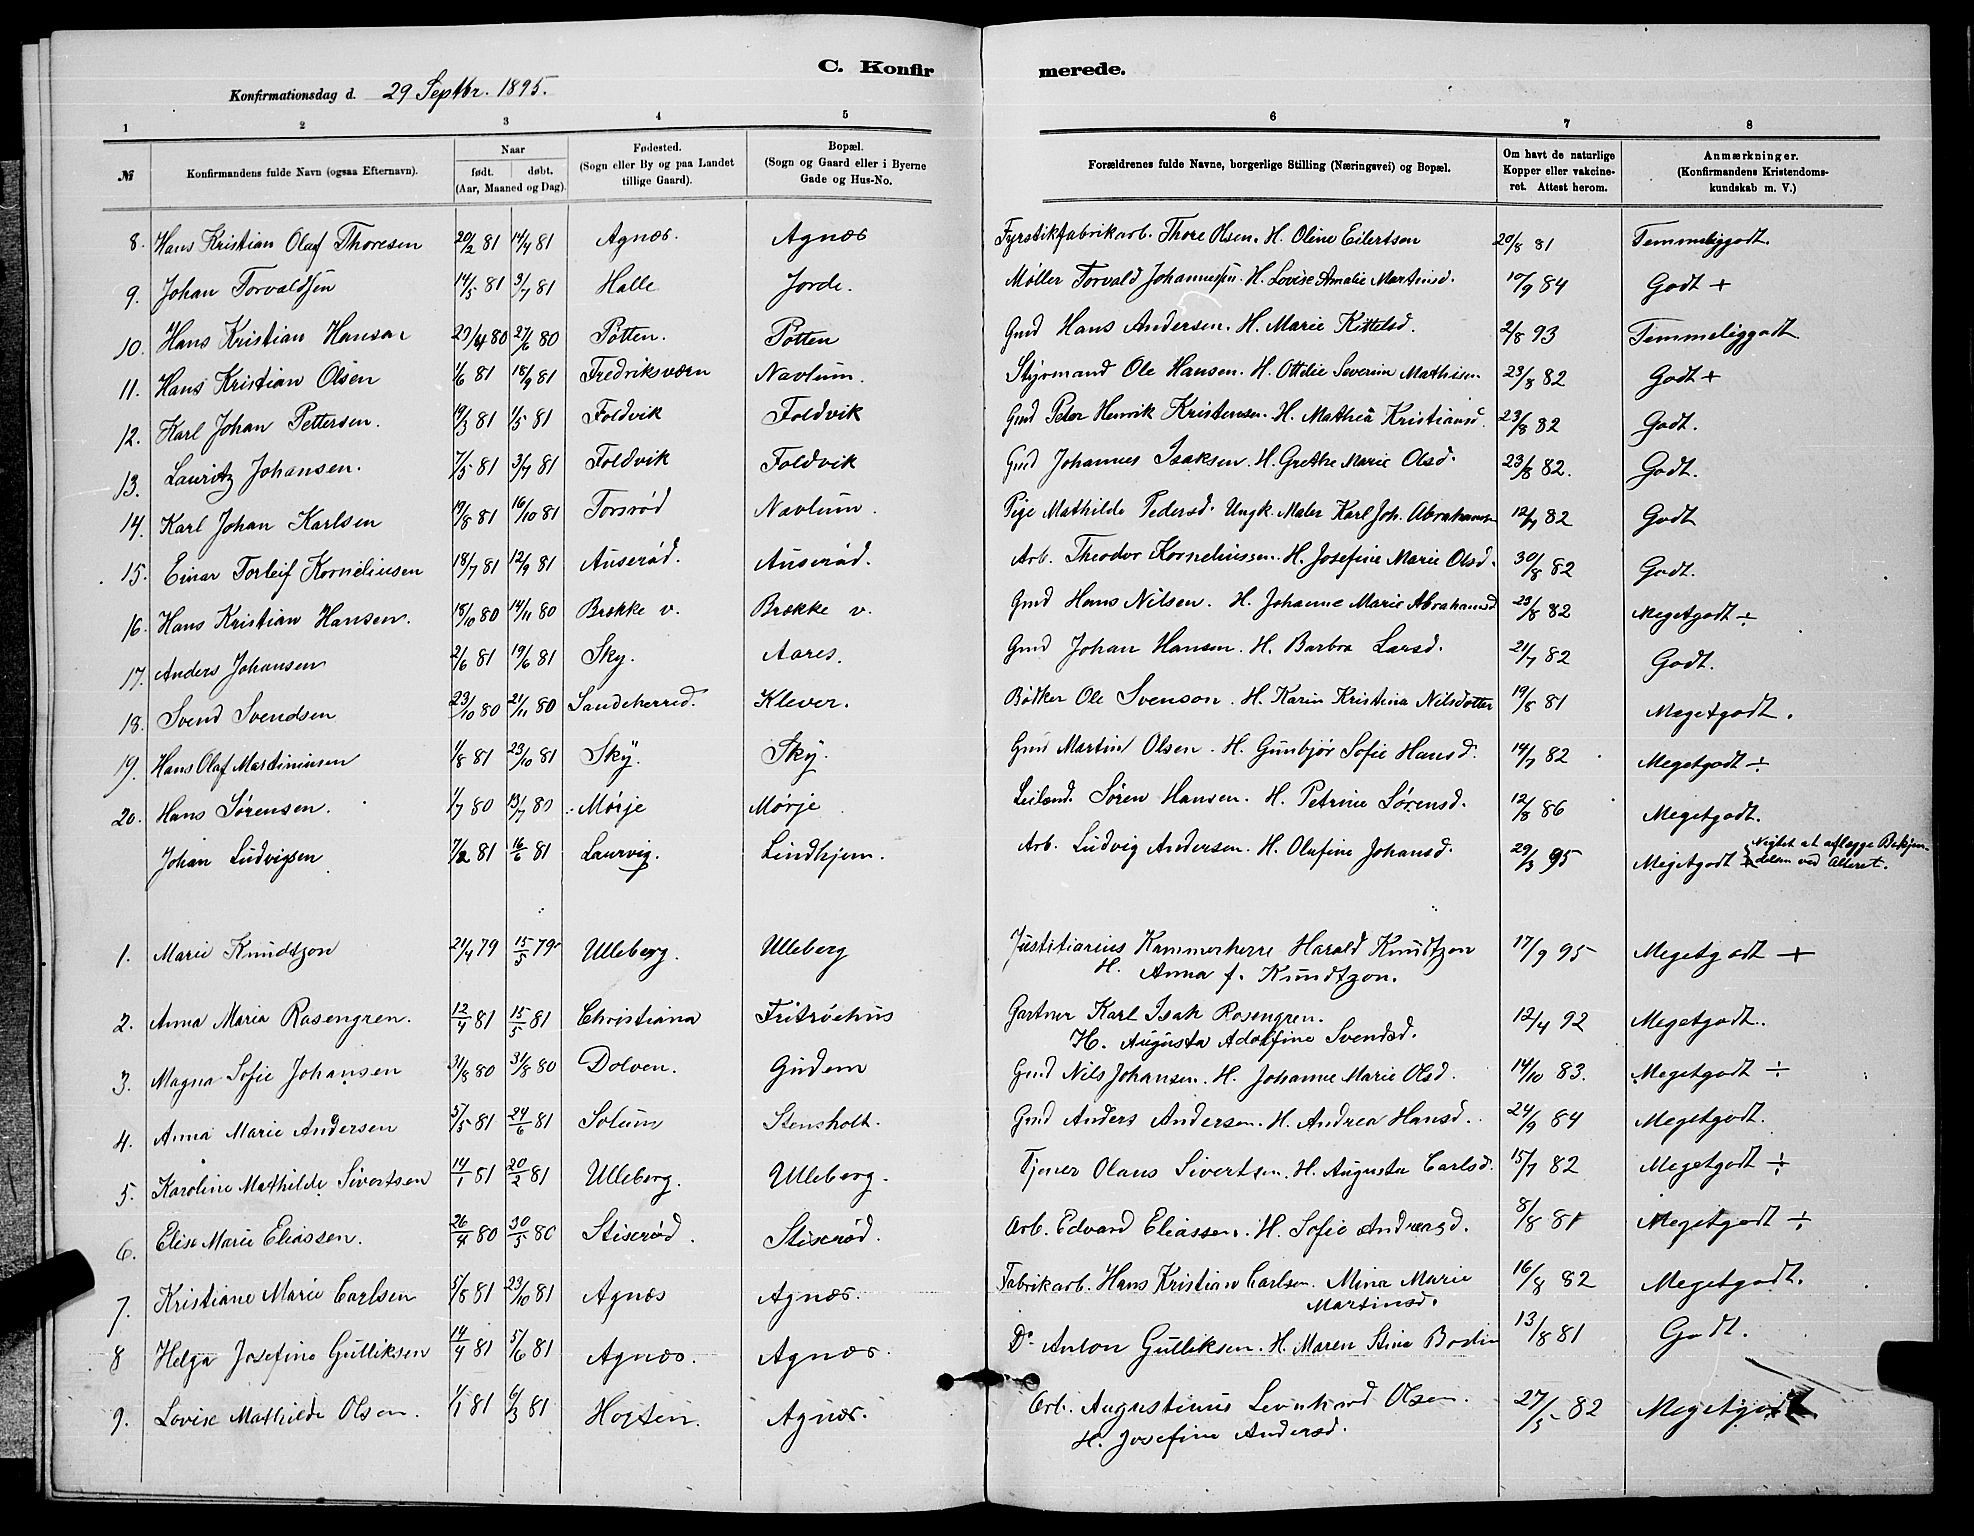 C. Konfirmerede.
Konfirmationsdag d. 29 Septbr. 1895.
1 2 3 4 5 6 7 8
№ | Konfirmandens fulde Navn (ogsaa Efternavn). | Naar født. døbt. (Aar, Maaned og Dag). | Fødested. (Sogn eller By og paa Landet tillige Gaard). | Bopæl. (Sogn og Gaard eller i Byerne Gade og Hus-No. | Forældrenes fulde Navne, borgerlige Stilling (Næringsvei) og Bopæl. | Om havt de naturlige Kopper eller vakcineret. Attest herom. | Anmærkninger. (Konfirmandens Kristendomskundskab m. V.)
8. Hans Kristian Olaf Thoresen 20/2 81 14/4 81 Agnæs. Agnæs Fyrstikfabrikarb. Thore Olsen. H. Oline Eilertsen 20/8 81 Temmeliggodt.
9. Johan Torvaldsen 14/5 81 3/7 81 Halle Jorde. Møller Torvald Johannessen. H. Lovise Amalie Martinsd. 10/9 84 Godt +
10. Hans Kristian Hansen 23/4 80 27/6 80 Pøtten. Pøtten Gmd Hans Andersen. H. Marie Kittelsd. 2/8 93 Temmeliggodt
11. Hans Kristian Olsen 1/6 81 18/9 81 Fredriksværn Navlum. Styrmand Ole Hansen. H. Ottilie Severine Mathisen 23/8 82 Godt +
12. Karl Johan Pettersen. 19/3 81 1/5 81 Foldvik Foldvik Gmd Peter Henrik Kristensen. H. Mathea Kristiansd. 23/8 82 Godt.
13. Lauritz Johansen. 7/5 81 3/7 81 Foldvik Foldvik Gmd Johannes Isaksen. H. Grethe Marie Olsd. 23/8 82. Godt.
14. Karl Johan Karlsen 19/8 81 16/10 81 Torsrød Navlum. Pige Mathilde Pedersd. Ungk. Maler Karl Joh. Abrahamsen 12/7 82 Godt
15. Einar Torleif Korneliusen 18/7 81 12/9 81 Auserød. Auserød. Arb. Theodor Korneliussen. H. Josefine Marie Olsd. 30/8 82 Godt.
16. Hans Kristian Hansen. 18/10 80 14/11 80 Brække v. Brække v. Gmd Hans Nilsen. H. Johanne Marie Abrahamsd 23/8 82 Megetgodt ÷
17. Anders Johansen 2/6 81 19/6 81 Sky. Aares. Gmd Johan Hansen. H. Barbra Larsd. 21/7 82 Godt.
18. Svend Svendsen 23/10 80 21/11 80 Sandeherred. Klever. Bødker Ole Svenson. H. Karin Kristina Nilsdotter 19/8 81 Megetgodt.
19. Hans Olaf Martiniusen 1/8 81 23/10 81 Sky. Sky. Gmd Martin Olsen. H. Gunbjør Sofie Hansd. 14/7 82 Megetgodt ÷
20. Hans Sørensen. 1/7 80 13/7 80 Mørje Mørje Leilænd. Søren Hansen. H. Petrine Sørensd. 12/8 86 Megetgodt.
Johan Ludvigsen 7/2 81 16/6 81 Laurvig. Lindhjem. Arb. Ludvig Andersen. H. Olafine Johansd. 29/3 95 Megetgodt + Nigtet at aflægge Bekjendelsen ved Alteret.
1. Marie Knudtzon 21/4 79 15/5 79 Ulleberg. Ulleberg Justitiarius Kammerherre Harald Knudtzon 17/9 95 Megetgodt +
H. Anna f. Knudtzon.
2. Anna Maria Rosengren. 12/4 81 15/5 81 Christiana Fritzøehus Gartner Karl Isak Rosengren. 12/4 92 Megetgodt.
H. Augusta Adolfine Svendsd.
3. Magna Sofie Johansen 31/8 80 31/8 80 Dolven. Gudem Gmd Nils Johansen. H. Johanne Marie Olsd. 14/10 83. Megetgodt ÷
4. Anna Marie Andersen 5/5 81 24/6 81 Solum Stensholt. Gmd Anders Andersen. H. Andrea Hansd. 24/9 84 Megetgodt.
5. Karoline Mathilde Sivertsen 14/1 81 20/2 81 Ulleberg. Ulleberg. Tjener Olaus Sivertsen. H. Augusta Carlsd. 15/7 82 Megetgodt ÷
6. Elise Marie Eliassen. 26/4 80 30/5 80 Stiserød. Stiserød. Arb. Edvard Eliassen. H. Sofie Andreasd. 8/8 81 Megetgodt ÷
7. Kristiane Marie Carlsen 5/8 81 23/10 81 Agnæs Agnæs. Fabrikarb. Hans Kristian Carlsen. Mina Marie 16/8 82 Megetgodt.
Martinsd.
8 Helga Josefine Gulliksen 14/4 81 5/6 81 Agnæs. Agnæs. Do Anton Gulliksen. H. Maren Stina Bodin 13/8 81 Godt.
9. Lovise Mathilde Olsen. 1/1 81 6/3 81 Hogsen. Agnæs. Arb. Augustinus Leonhard Olsen. 27/5 82 Megetgodt.
H. Josefine Andersd.